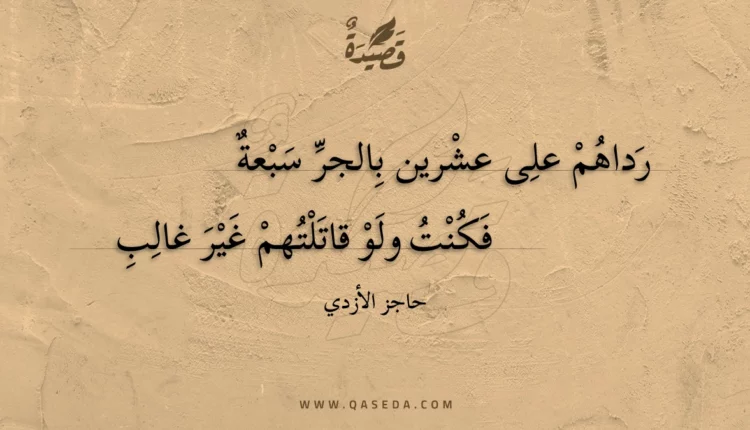 قَصِيدَةٌ
رَداهُمْ علِى عشْرين بِالجرِّ سَبْعةٌ
فَكُنْتُ ولَوْ قاتَلْتُهمْ غَيْرَ غالِبِ
حاجز الأزدي
WWW.QASEDA.COM